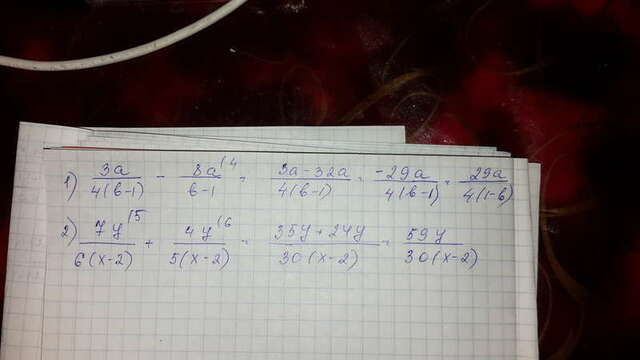 1) 3a/4(b-1) - 8a(4/b-1 = 3a-32a/4(b-1) = -29a/4(b-1) = 29a/4(1-b)
2) 7y(5/6(x-2) + 4y(6/5(x-2) = 35y+24y/30(x-2) = 59y/30(x-2)